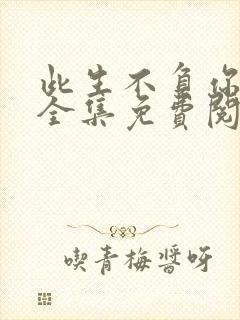 此生不负你
全集免費閱
喫青梅醬呀